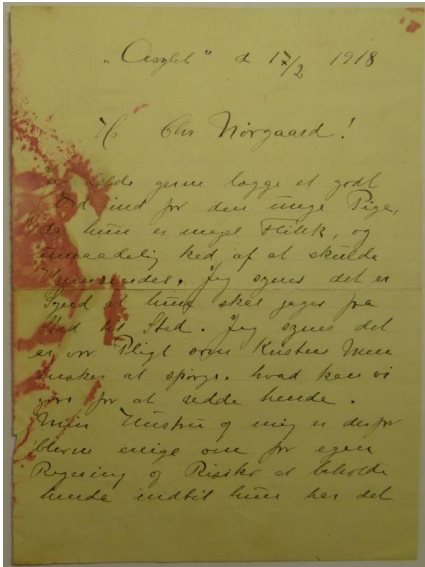 "Asylet" d 17/2 1918
Hr Chr Nørgaard!
vilde gerne lægge et godt
Ord ind for den unge Pige,
da hun er meget flink, og
umaadelig ked af at skulde
Jeg synes det er
Synd at hun skal jages fra
Sted til Sted. Jeg synes det
er vor Pligt som Kristne Men
nesker at spørge. hvad kan vi
gøre for at redde hende.
Min Hustru og mig er derfor
bleven enige om for egen
Regning og Risiko at beholde
hende indtil hun har det